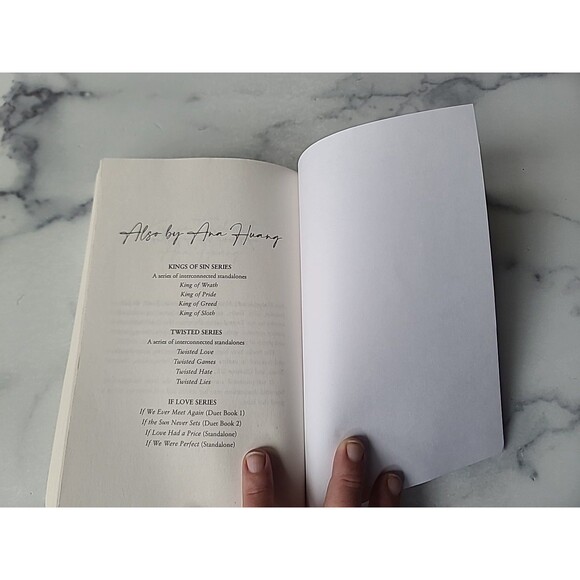 Also by Ana Huang
KINGS OF SIN SERIES
A series of interconnected standalones
King of Wrath
King of Pride
King of Greed
King of Sloth
TWISTED SERIES
A series of interconnected standalones
Twisted Love
Twisted Games
Twisted Hate
Twisted Lies
IF LOVE SERIES
If We Ever Meet Again (Duet Book 1)
If the Sun Never Sets (Duet Book 2)
If Love Had a Price (Standalone)
If We Were Perfect (Standalone)